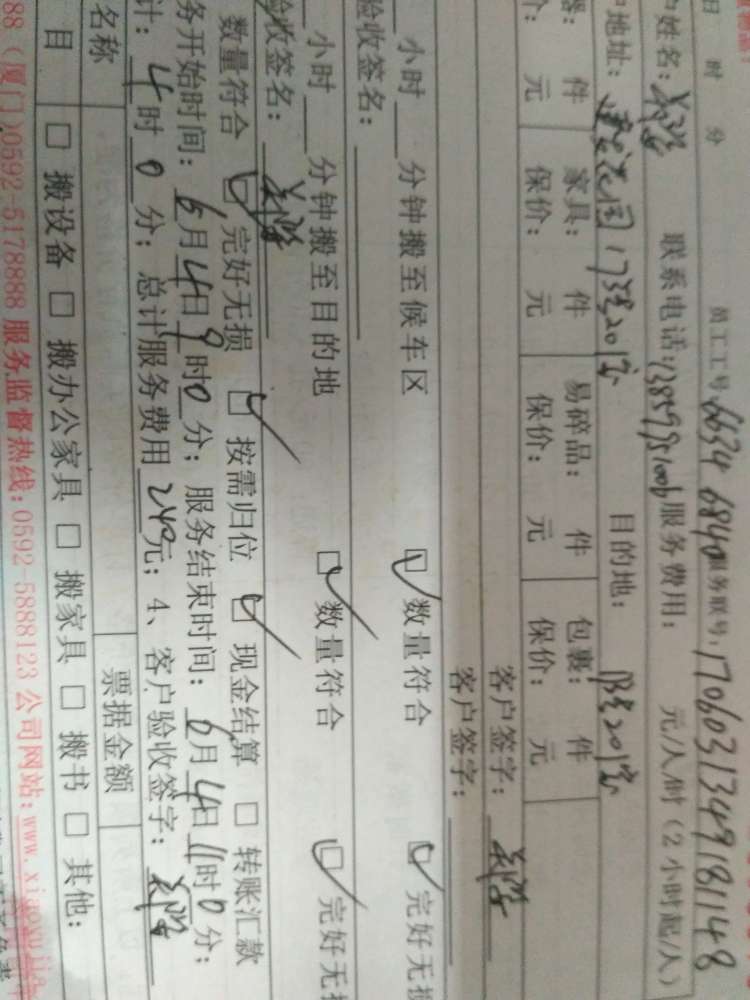 日 时 分 员工工号: 6634 6840 服务联号: 170603134918 1148
姓名: 联系电话: 服务费用: 元/人/时（2小时起/人）
地址: 花园173号201室 目的地: 18号201室
器: 件 家具: 件 易碎品: 件 包裹: 件
价: 元 保价: 元 保价: 元 保价: 元
客户签字:
客户签字:
小时 分钟搬至候车区 数量符合 完好无损
验收签名:
小时 分钟搬至目的地 数量符合 完好无损
验收签名:
数量符合 完好无损 按需归位 现金结算 转账汇款
务开始时间: 6月4日9时0分; 服务结束时间: 6月4日11时0分;
计: 4时0分; 总计服务费用240元; 4、客户验收签字:
名称 票据金额
目 搬设备 搬办公家具 搬家具 搬书 其他:
88（厦门)0592-5178888 服务监督热线:0592-5888123 公司网站:www.xiaoyu